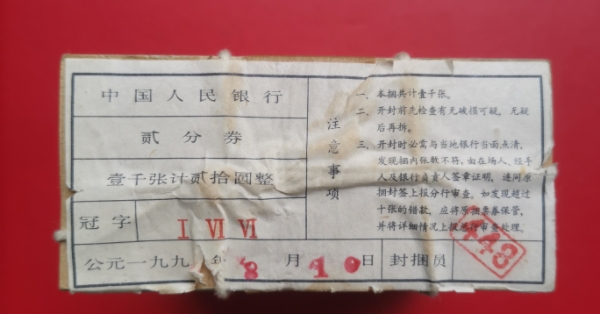 中国人民银行
贰分券
壹千张计贰拾圆整
冠字 I VI VI
公元一九九 年 8 月 10 日 封捆员
443
注意事项
一、本捆共计壹千张。
二、开封前先检查有无破损可疑，无疑
后再拆。
三、开封时必需与当地银行当面点清，
发现捆内张数不符，由在场人，经手
人及银行负责人签章证明，连同原
捆封签上报分行审查。如发现超过
十张的错款，应将原捆票券保管，
并将详细情况上报总行审查处理。